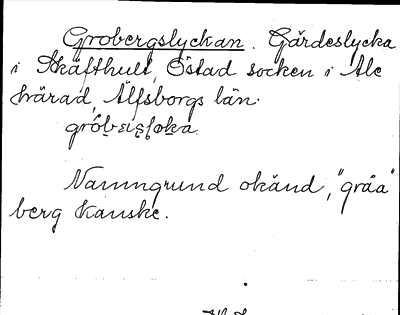 Grobergslyckan. Gärdeslycka
i Skäfthult, Östad socken i Ale
härad, Älfsborgs län.
Namngrund okänd, "gråa"
berg kanske.